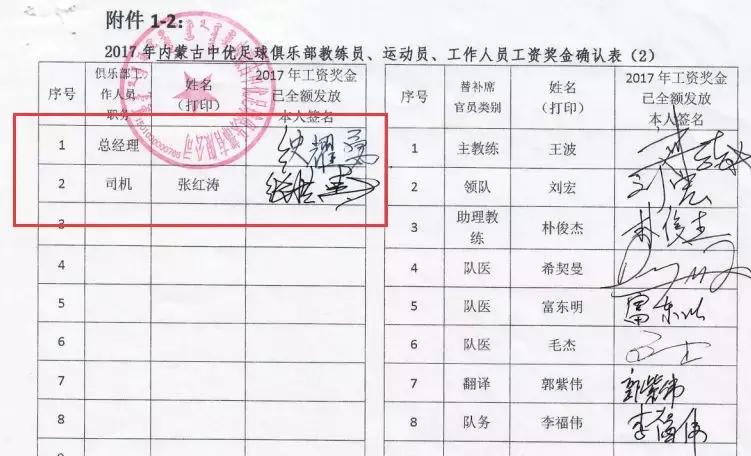 附件 1-2：
2017 年内蒙古中优足球俱乐部教练员、运动员、工作人员工资奖金确认表（2）
序号
俱乐部工
作人员
职务
姓名
（打印）
2017 年工资奖金
已全额发放
本人签名
1 总经理
2 司机 张红涛
3
4
5
6
7
8
有限公司
序号
替补席
官员类别
姓名
（打印）
2017 年工资奖金
已全额发放
本人签名
1 主教练 王波
2 领队 刘宏
3 助理教
练 朴俊杰 朴俊杰
4 队医 希契曼
5 队医 富东明
6 队医 毛杰
7 翻译 郭紫伟 郭紫伟
8 队务 李福伟 李福伟